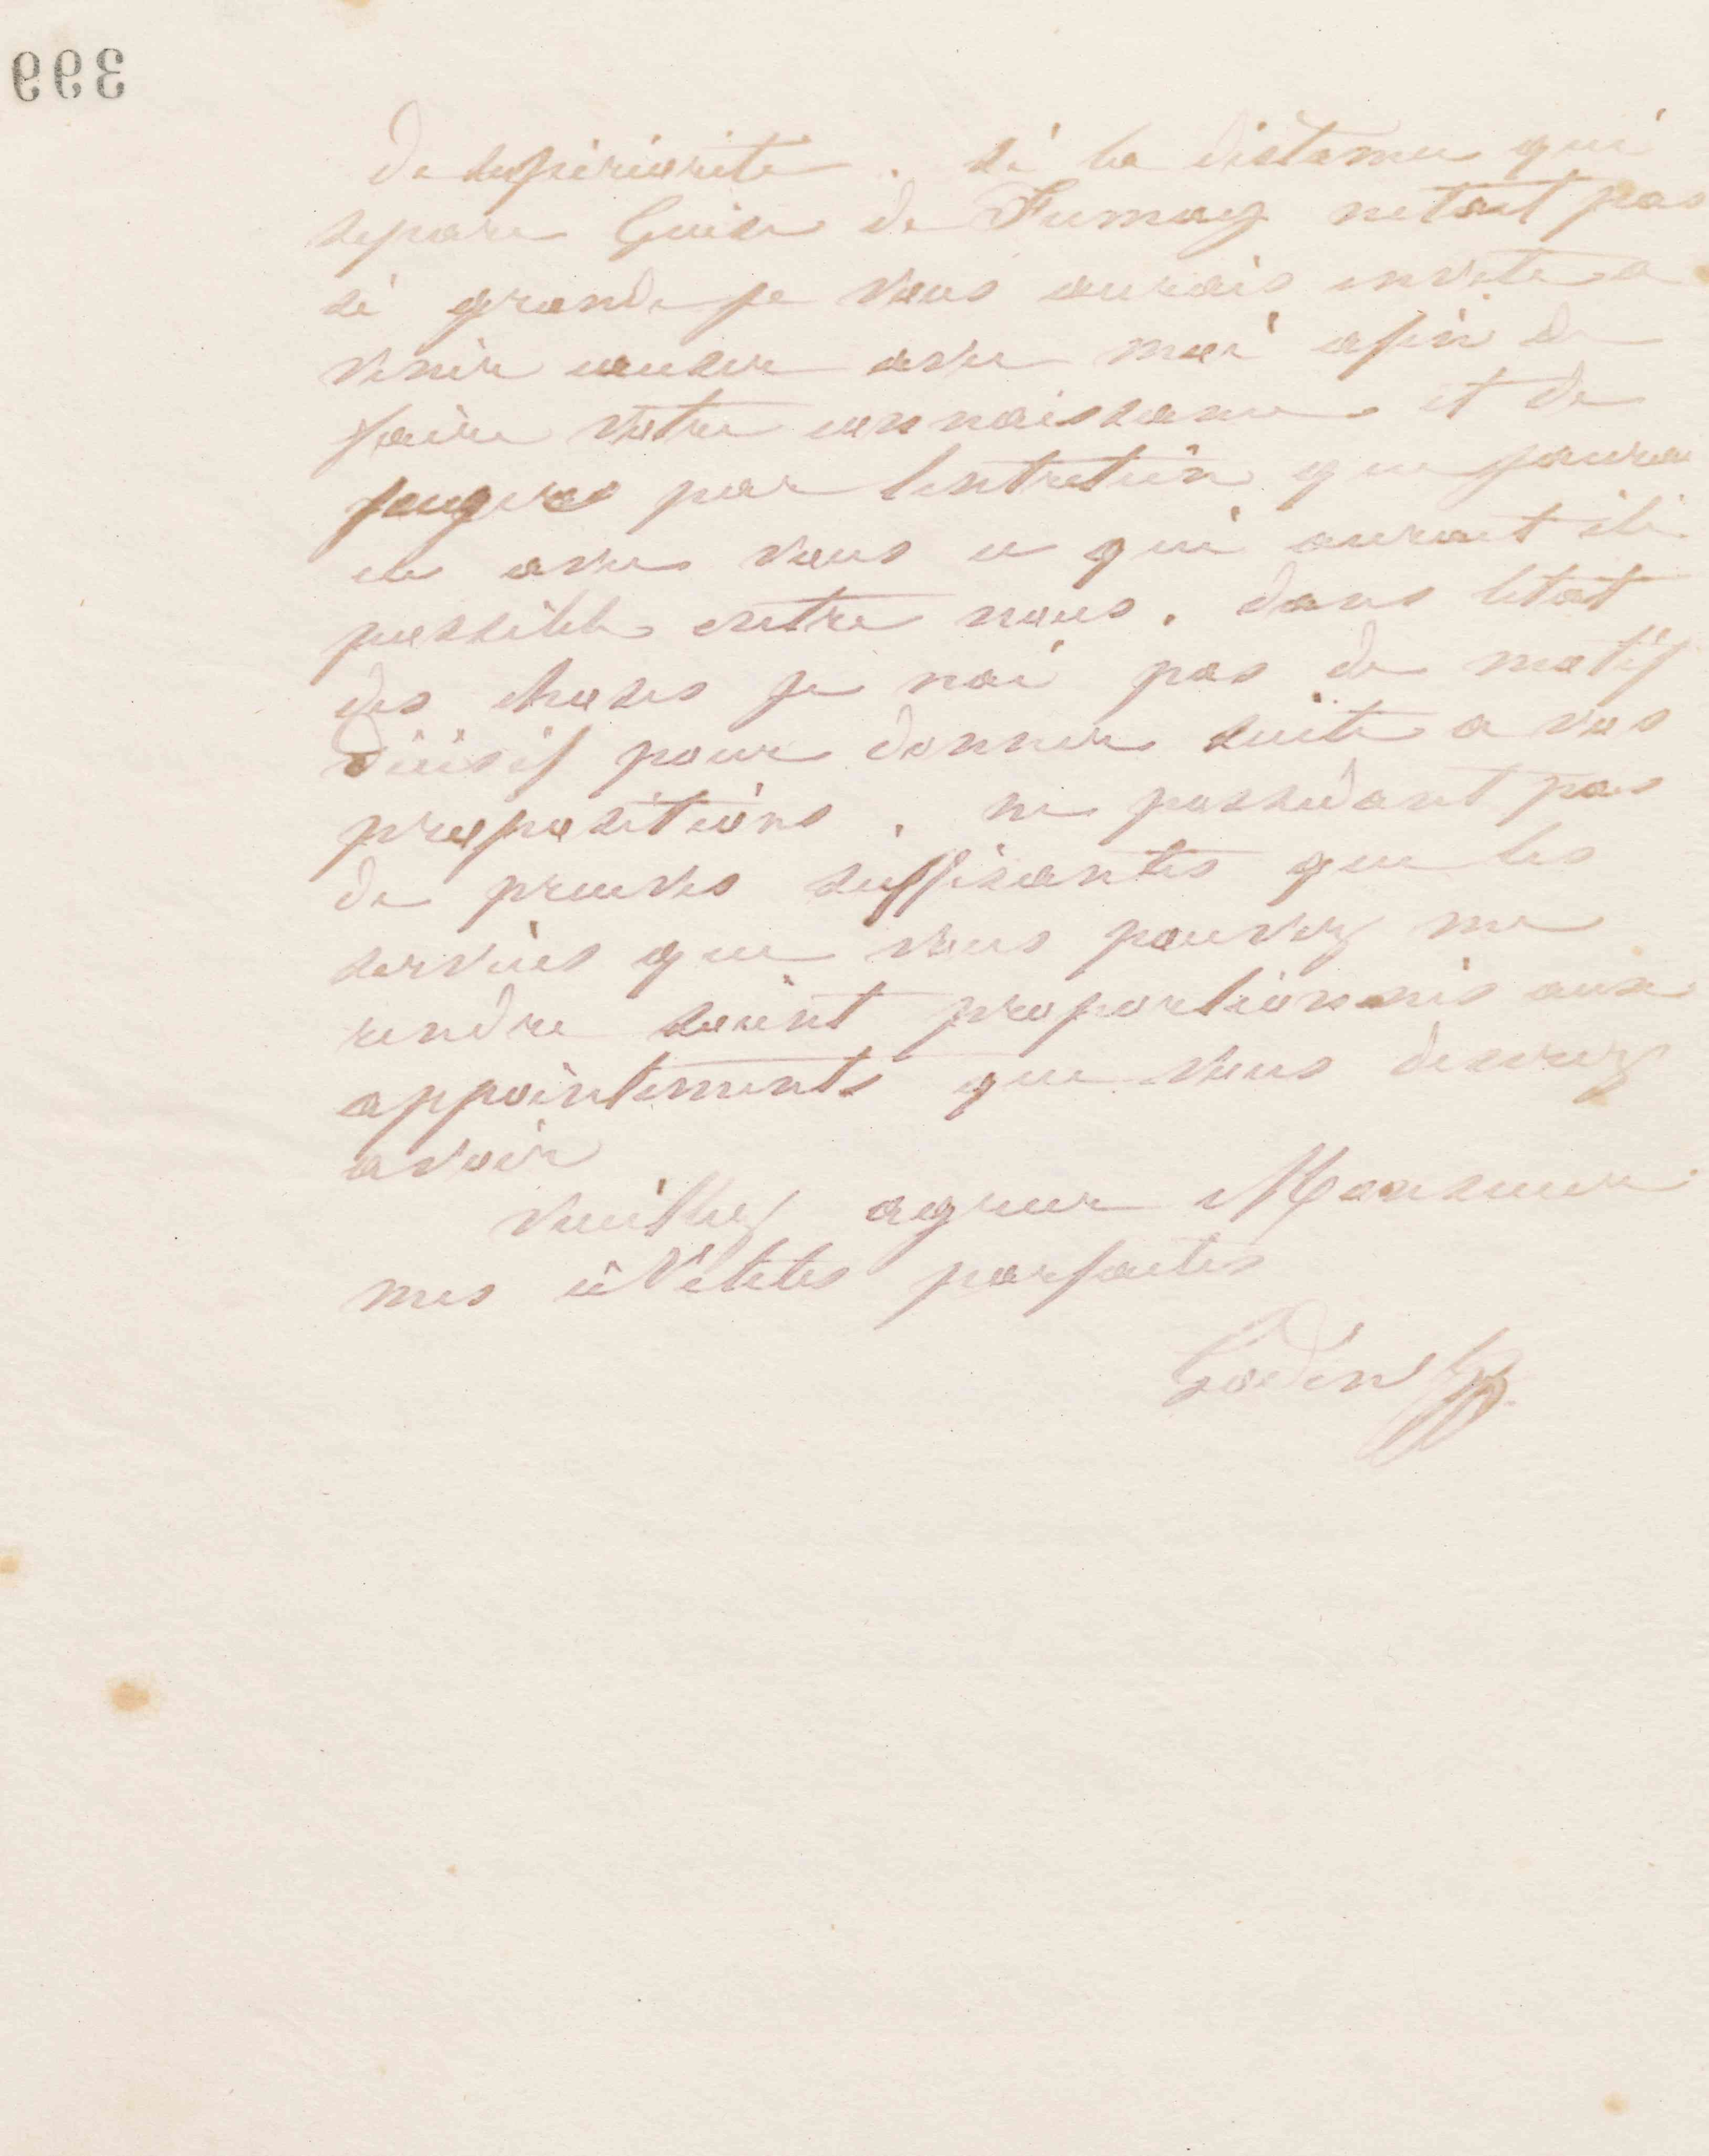 399
de superiorite. si la distance qui
separe Guise de Fumay netait pas
si grande je vous aurais invite a
venir causer avec moi afin de
faire votre connaissance et de
juger par lentretien que jaurais
eu avec vous ce qui aurait été
possible entre nous. dans létat
des choses je nai pas de motif
décisif pour donner suite a vos
propositions. ne possedant pas
de preuves suffisantes que les
services que vous pouvez me
rendre soient proportionnés aux
appointements que vous desirez
avoir
Veuillez agreer Monsieur
mes civilités parfaites
Godin